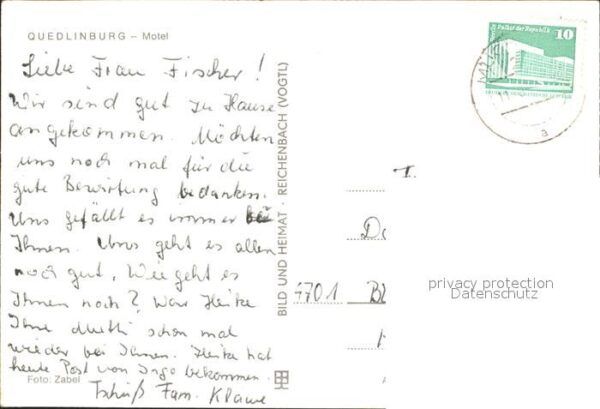 QUEDLINBURG – Motel
Liebe Frau Fischer!
Wir sind gut zu Hause
angekommen. Möchten
uns noch mal für die
gute Bewirtung bedanken.
Uns gefällt es immer bei
Ihnen. Uns geht es allen
noch gut. Wie geht es
Ihnen noch? War Heike
Ihre Mutti schon mal
wieder bei Ihnen. Heike hat
heute Post von Ingo bekommen.
Tschüß Fam. Klawe
Foto: Zabel
BILD UND HEIMAT · REICHENBACH (VOGTL)
Palast der Republik
10
a
7701
privacy protection
Datenschutz